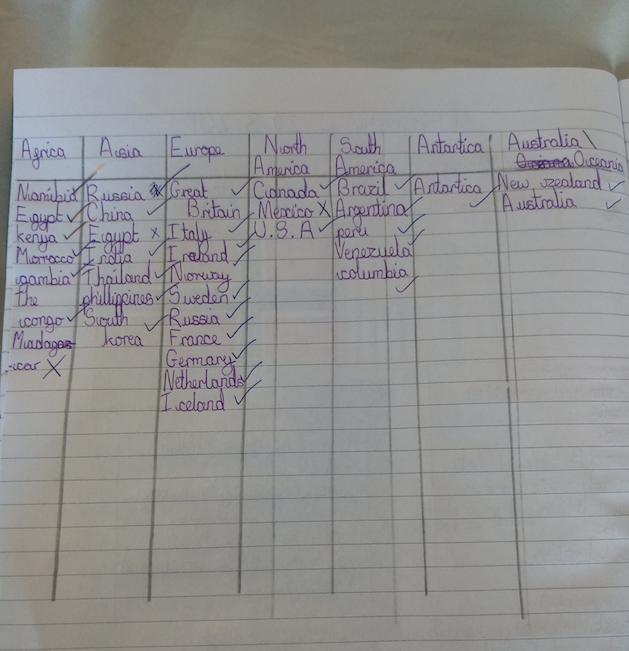 Africa Asia Europe North America South America Antartica Australia\ Oceania
Namibia Russia Great Britain Canada Brazil Antartica New zealand
Egypt China Italy Mexico Argentina Australia
kenya Egypt Ireland U.S.A peru
Morrocco India Norway Venezuela
gambia Thailand Sweden columbia
the congo phillippines Russia
Madagascar South korea France
Germany
Netherlands
Iceland